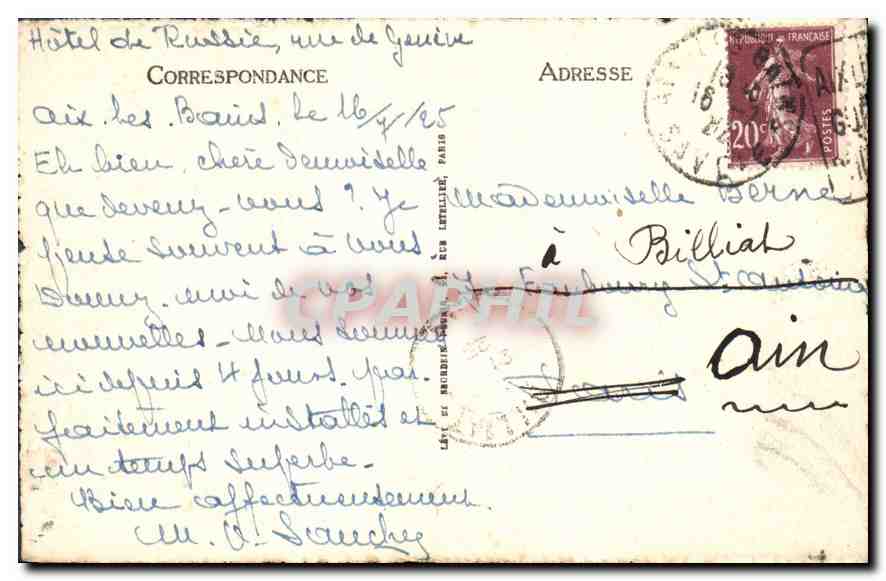 Hôtel de Russie, rue de Genève
CORRESPONDANCE
Aix les Bains, le 16/7/25
Eh bien, chère demoiselle
que devenez-vous ? Je
pense souvent à vous
Donnez-moi de vos
nouvelles. Nous sommes
ici depuis 4 jours, par-
faitement installés et
un temps superbe.
Bien affectueusement.
M. V.
LÉVY ET NEURDEIN RÉUNIS, 44, RUE LETELLIER, PARIS
ADRESSE
RÉPUBLIQUE FRANÇAISE
20c
POSTES
Mademoiselle Berne
à Billiat
Faubourg St Antoine
Ain
Paris
CPAPHIL